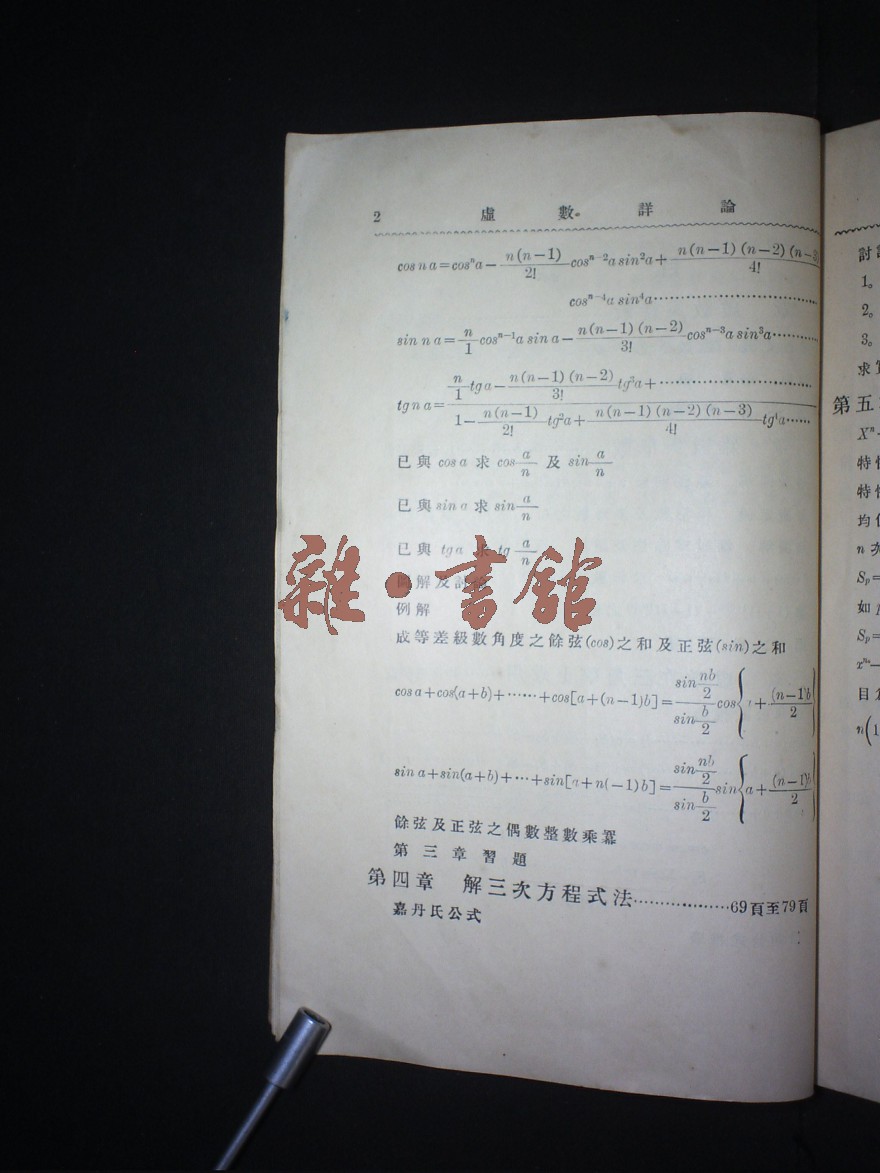 2 虛數詳論
cos n a=cosⁿa−n(n−1)/2! cosⁿ⁻²a sin²a+n(n−1)(n−2)(n−3/4!
cosⁿ⁻⁴a sin⁴a……………………
sin n a=n/1 cosⁿ⁻¹a sin a−n(n−1)(n−2)/3! cosⁿ⁻³a sin³a…………
tg n a=(n/1 tg a−n(n−1)(n−2)/3! tg³a+……………………)/(1−n(n−1)/2! tg²a+n(n−1)(n−2)(n−3)/4! tg⁴a……)
已與 cos a 求 cos a/n 及 sin a/n
已與 sin a 求 sin a/n
已與 tg a 求 tg a/n
解及討論
例解
成等差級數角度之餘弦(cos)之和及正弦(sin)之和
cos a+cos(a+b)+……+cos[a+(n−1)b]=(sin nb/2)/(sin b/2) cos{ +(n−1)b/2}
sin a+sin(a+b)+…+sin[a+n(−1)b]=(sin nb/2)/(sin b/2) sin{a+(n−1)b/2}
餘弦及正弦之偶數整數乘冪
第三章習題
第四章 解三次方程式法………………69頁至79頁
嘉丹氏公式
雜·書館
討
1。
2。
3。
求
第五
Xⁿ
特
特
均
n 次
Sₚ=
如
Sₚ=
目
n(1